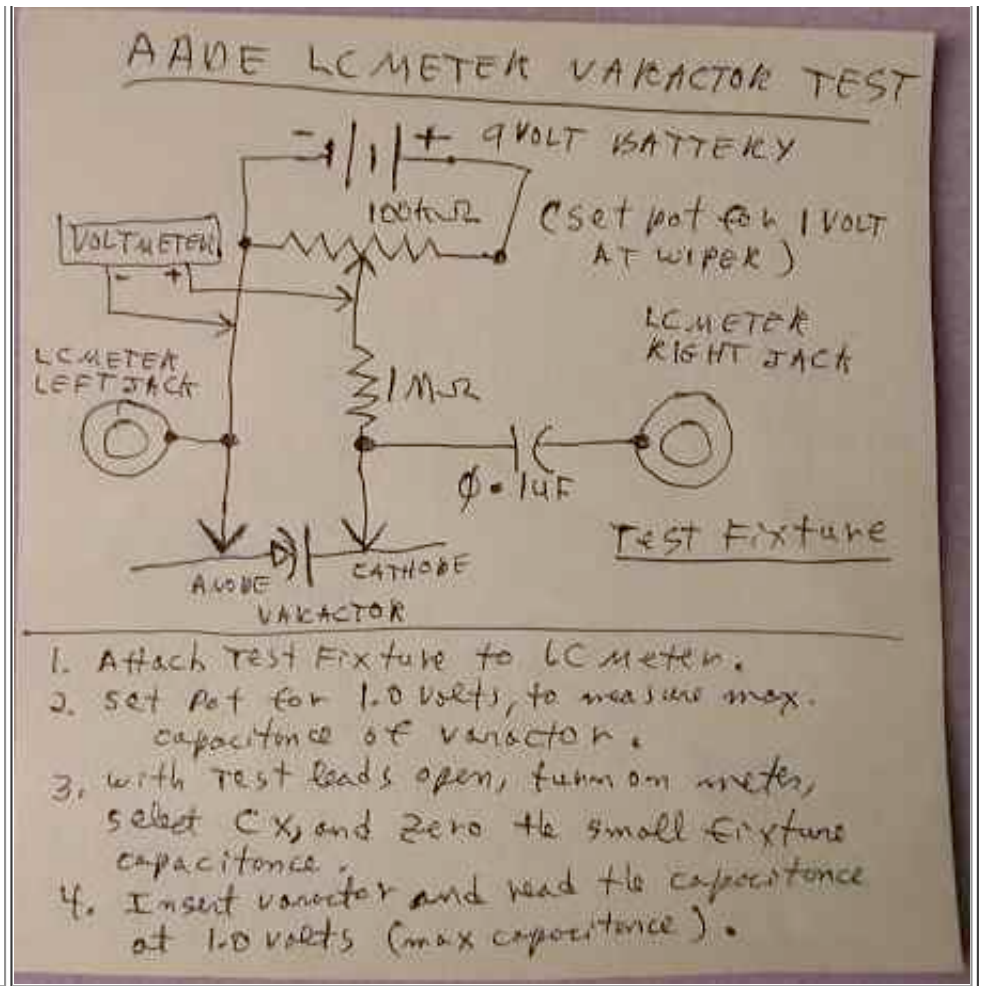 AADE LC METER VARACTOR TEST
- + 9 VOLT BATTERY
100KΩ
(set pot for 1 VOLT
AT WIPER)
VOLTMETER
- +
LC METER
LEFT JACK
LC METER
RIGHT JACK
1MΩ
0.1uF
Test Fixture
ANODE
CATHODE
VARACTOR
1. Attach Test Fixture to LC Meter.
2. Set Pot for 1.0 Volts, to measure max.
capacitance of varactor.
3. with Test leads open, turn on meter,
select CX, and Zero the small fixture
capacitance.
4. Insert varactor and read the capacitance
at 1.0 volts (max capacitance).